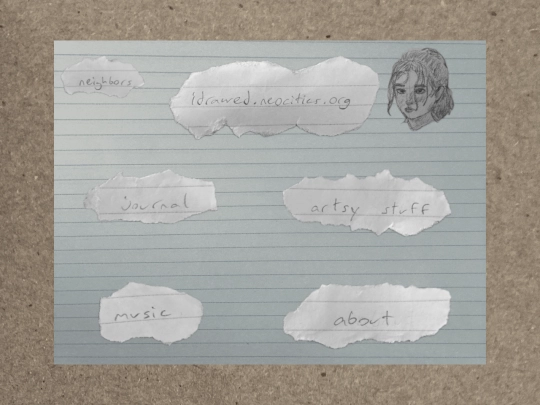 neighbors
idrawed.neocities.org
journal
artsy stuff
music
about